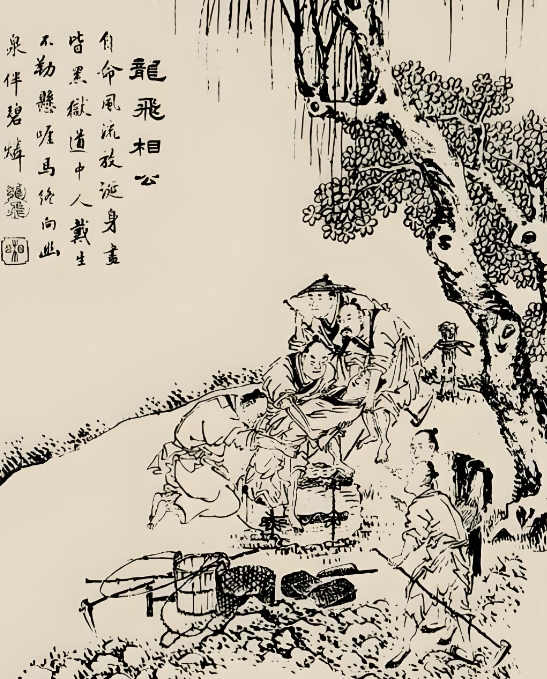 龍飛相公
自命風流放誕身盡
皆黑獄道中人戴生
不勒懸崖馬終向幽
泉伴碧燐
龍飛